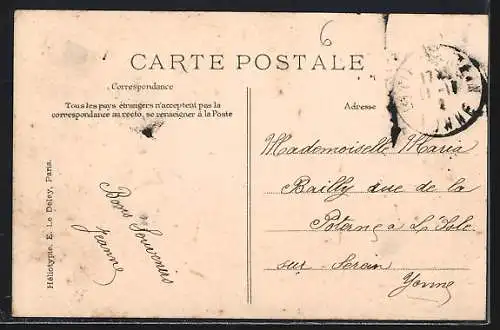 6
CARTE POSTALE
Correspondance
Tous les pays étrangers n'acceptent pas la
correspondance au recto, se renseigner à la Poste
Héliotypie, E. Le Deley, Paris.
Bons Souvenirs
Jeanne
Adresse
Mademoiselle Maria
Bailly rue de la
Potence à L'Isle
sur Serein
Yonne